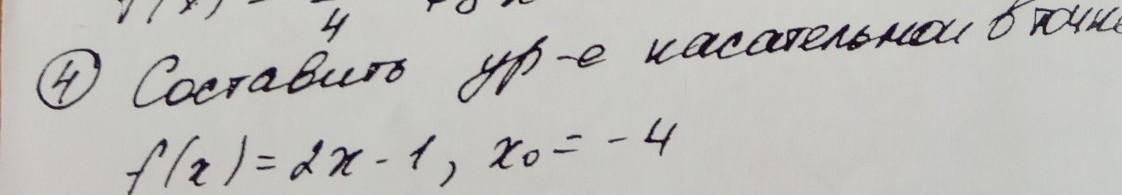 4
④ Составить ур-е касательной в точке
f(x) = 2x - 1, x₀ = -4